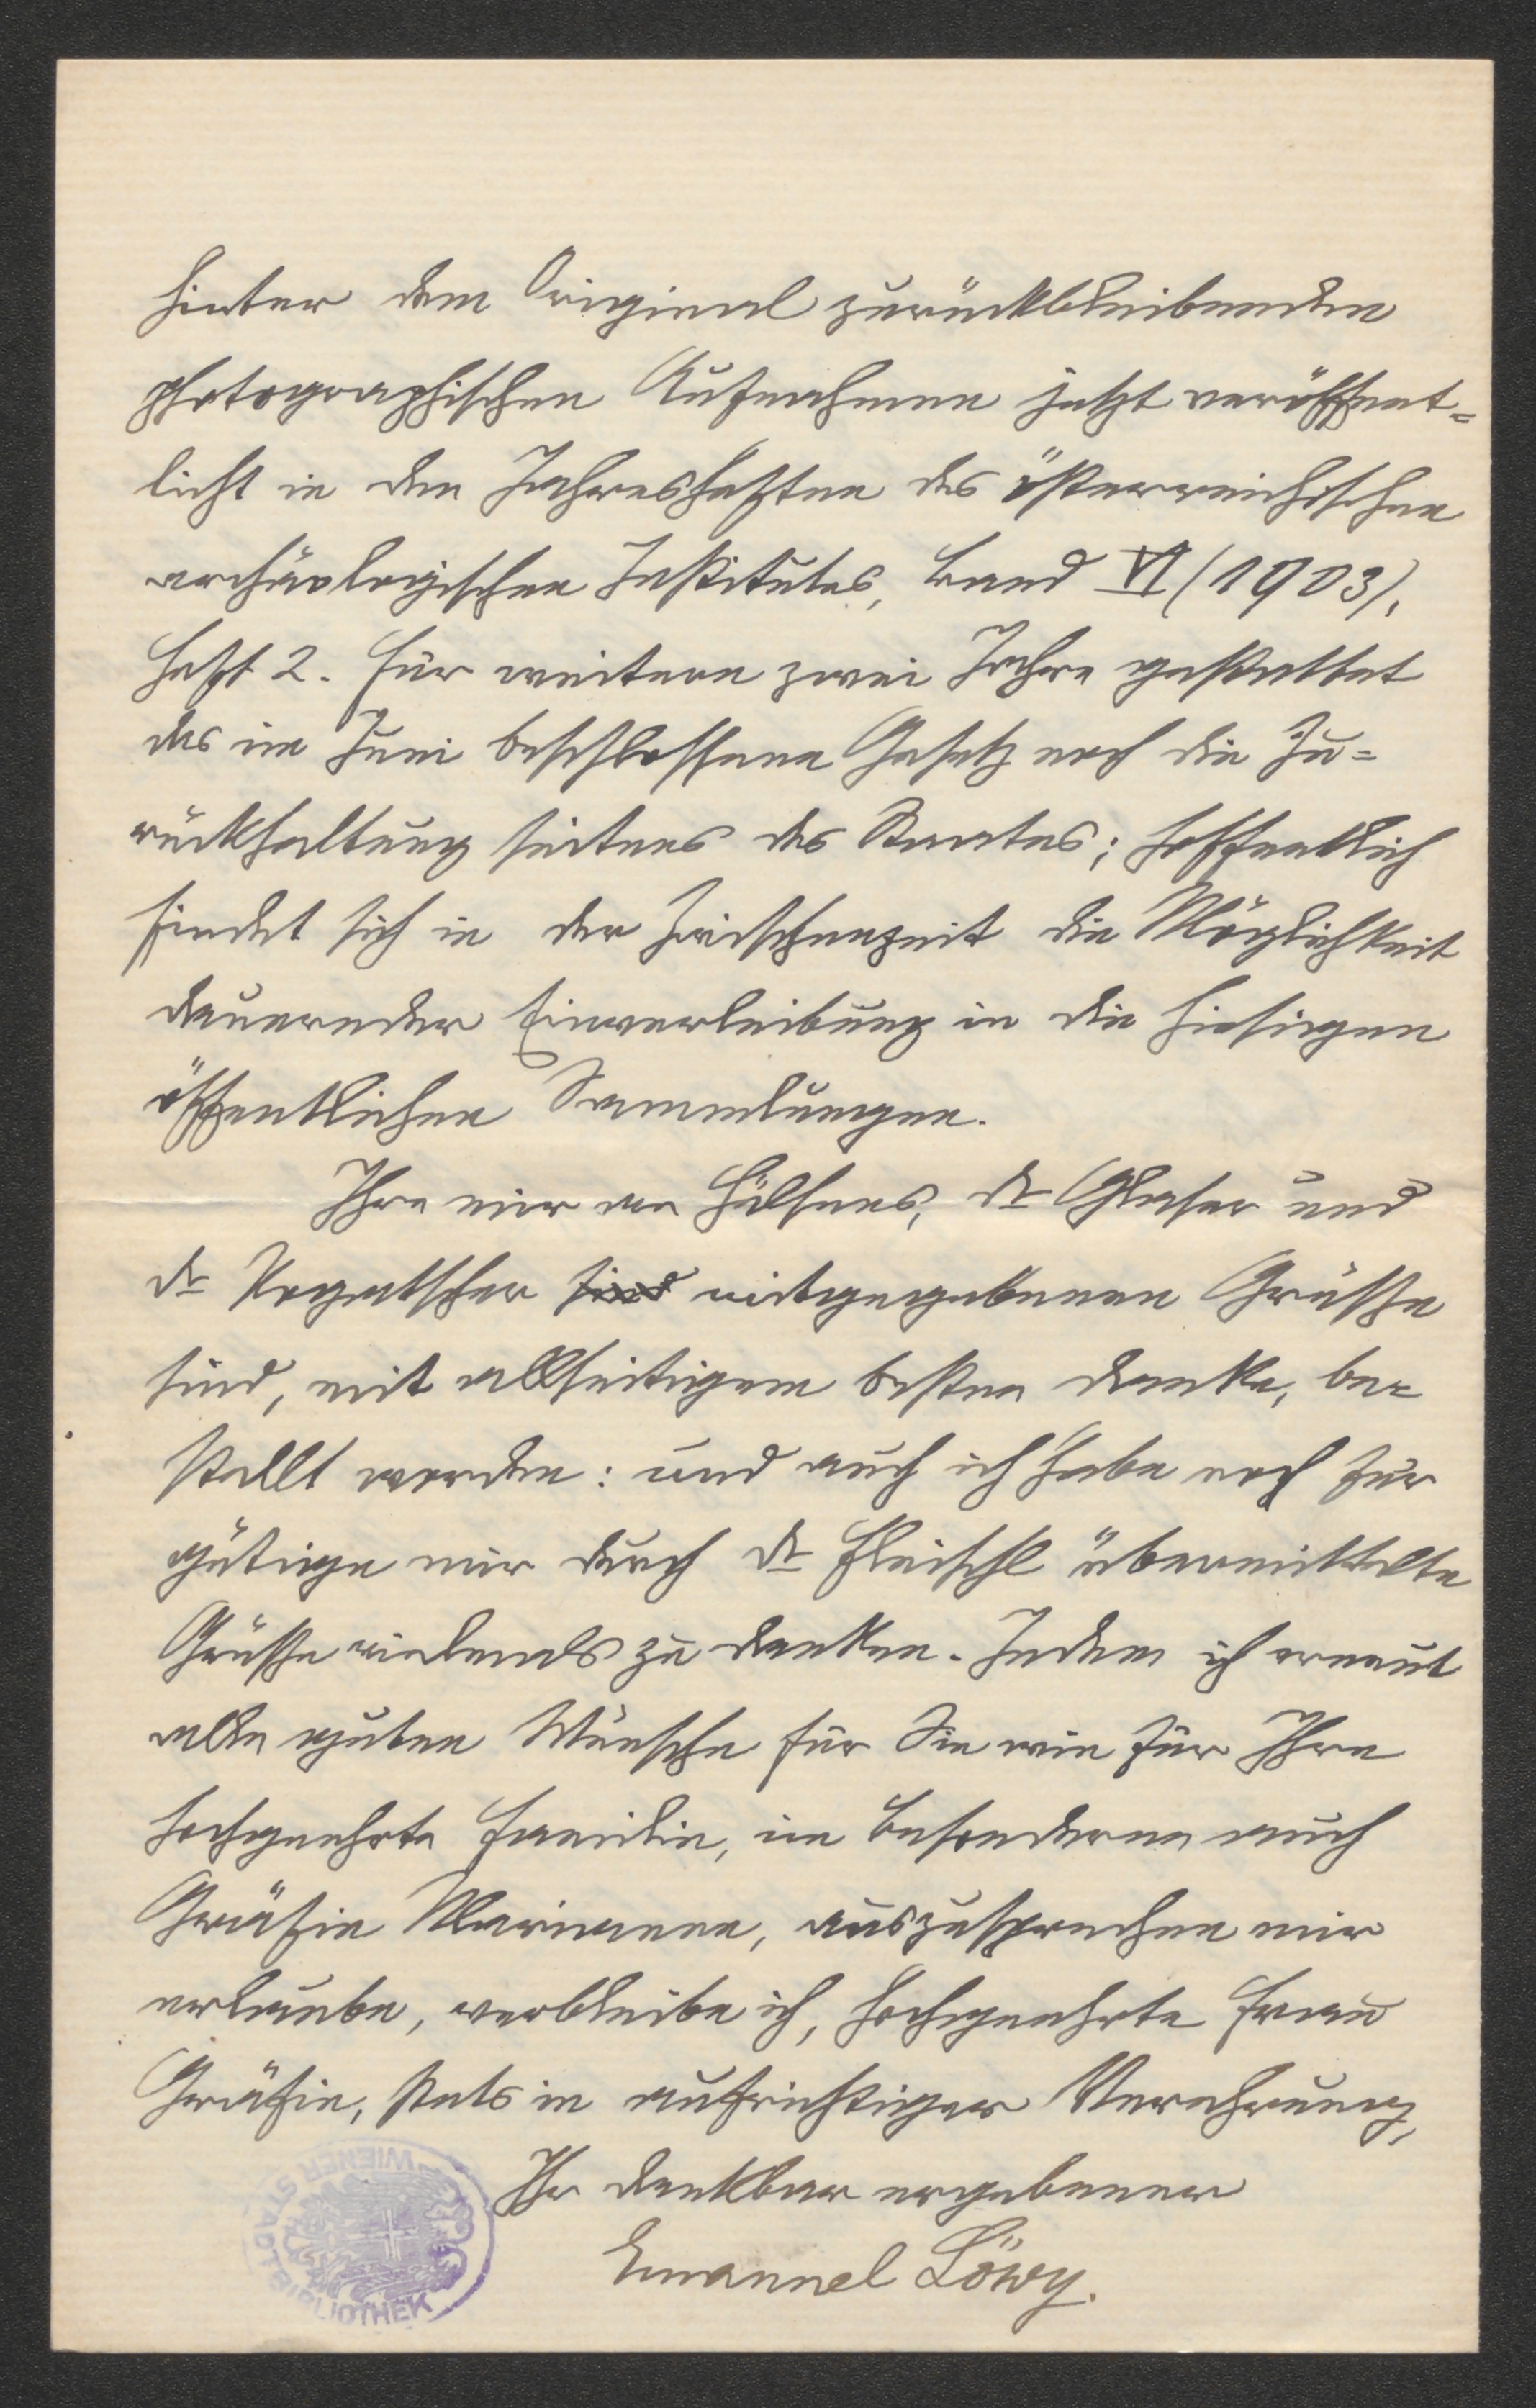 hinter dem Original zurückbleibenden
photographischen Aufnahmen jetzt veröffent=
licht in den Jahresheften des österreichischen
archäologischen Institutes, Band VI (1903),
Heft 2. Für weitere zwei Jahre gestattet
das im Juni beschlossene Gesetz noch die Zu=
rückhaltung seitens des Staates; hoffentlich
findet sich in der Zwischenzeit die Möglichkeit
dauernder Einverleibung in die hiesigen
öffentlichen Sammlungen.
Ihre mir an Hülsens, Dr Glaser und
Dr Pogatscher sind mitgegebenen Grüsse
sind, mit allseitigem besten Danke, be=
stellt worden: und auch ich habe noch für
gütige mir durch Dr Fleischl übermittelte
Grüsse vielmals zu danken. Indem ich erneut
alle guten Wünsche für Sie wie für Ihre
hochgeehrte Familie, im Besonderen auch
Gräfin Marianne, auszusprechen mir
erlaube, verbleibe ich, hochgeehrte Frau
Gräfin, stets in aufrichtiger Verehrung,
Ihr dankbar ergebener
Emanuel Löwy.
WIENER STADTBIBLIOTHEK